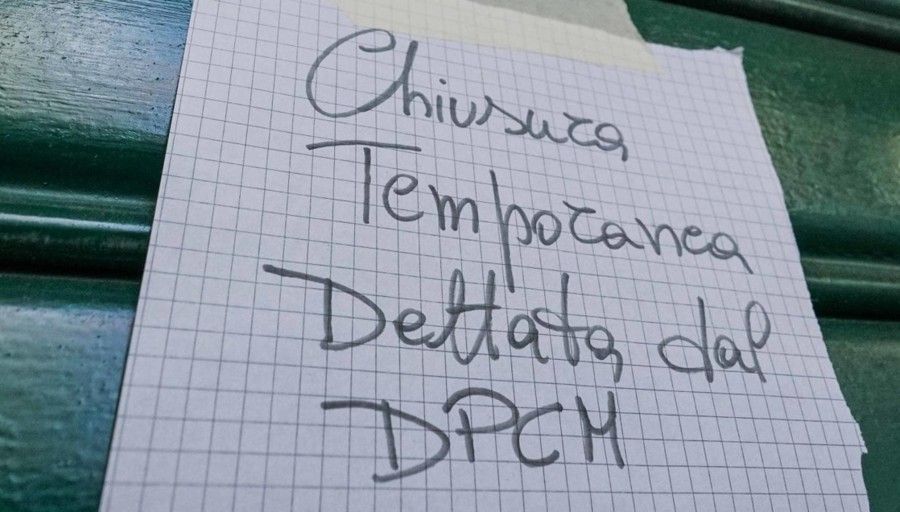 Chiusura
Temporanea
Dettata dal
DPCM